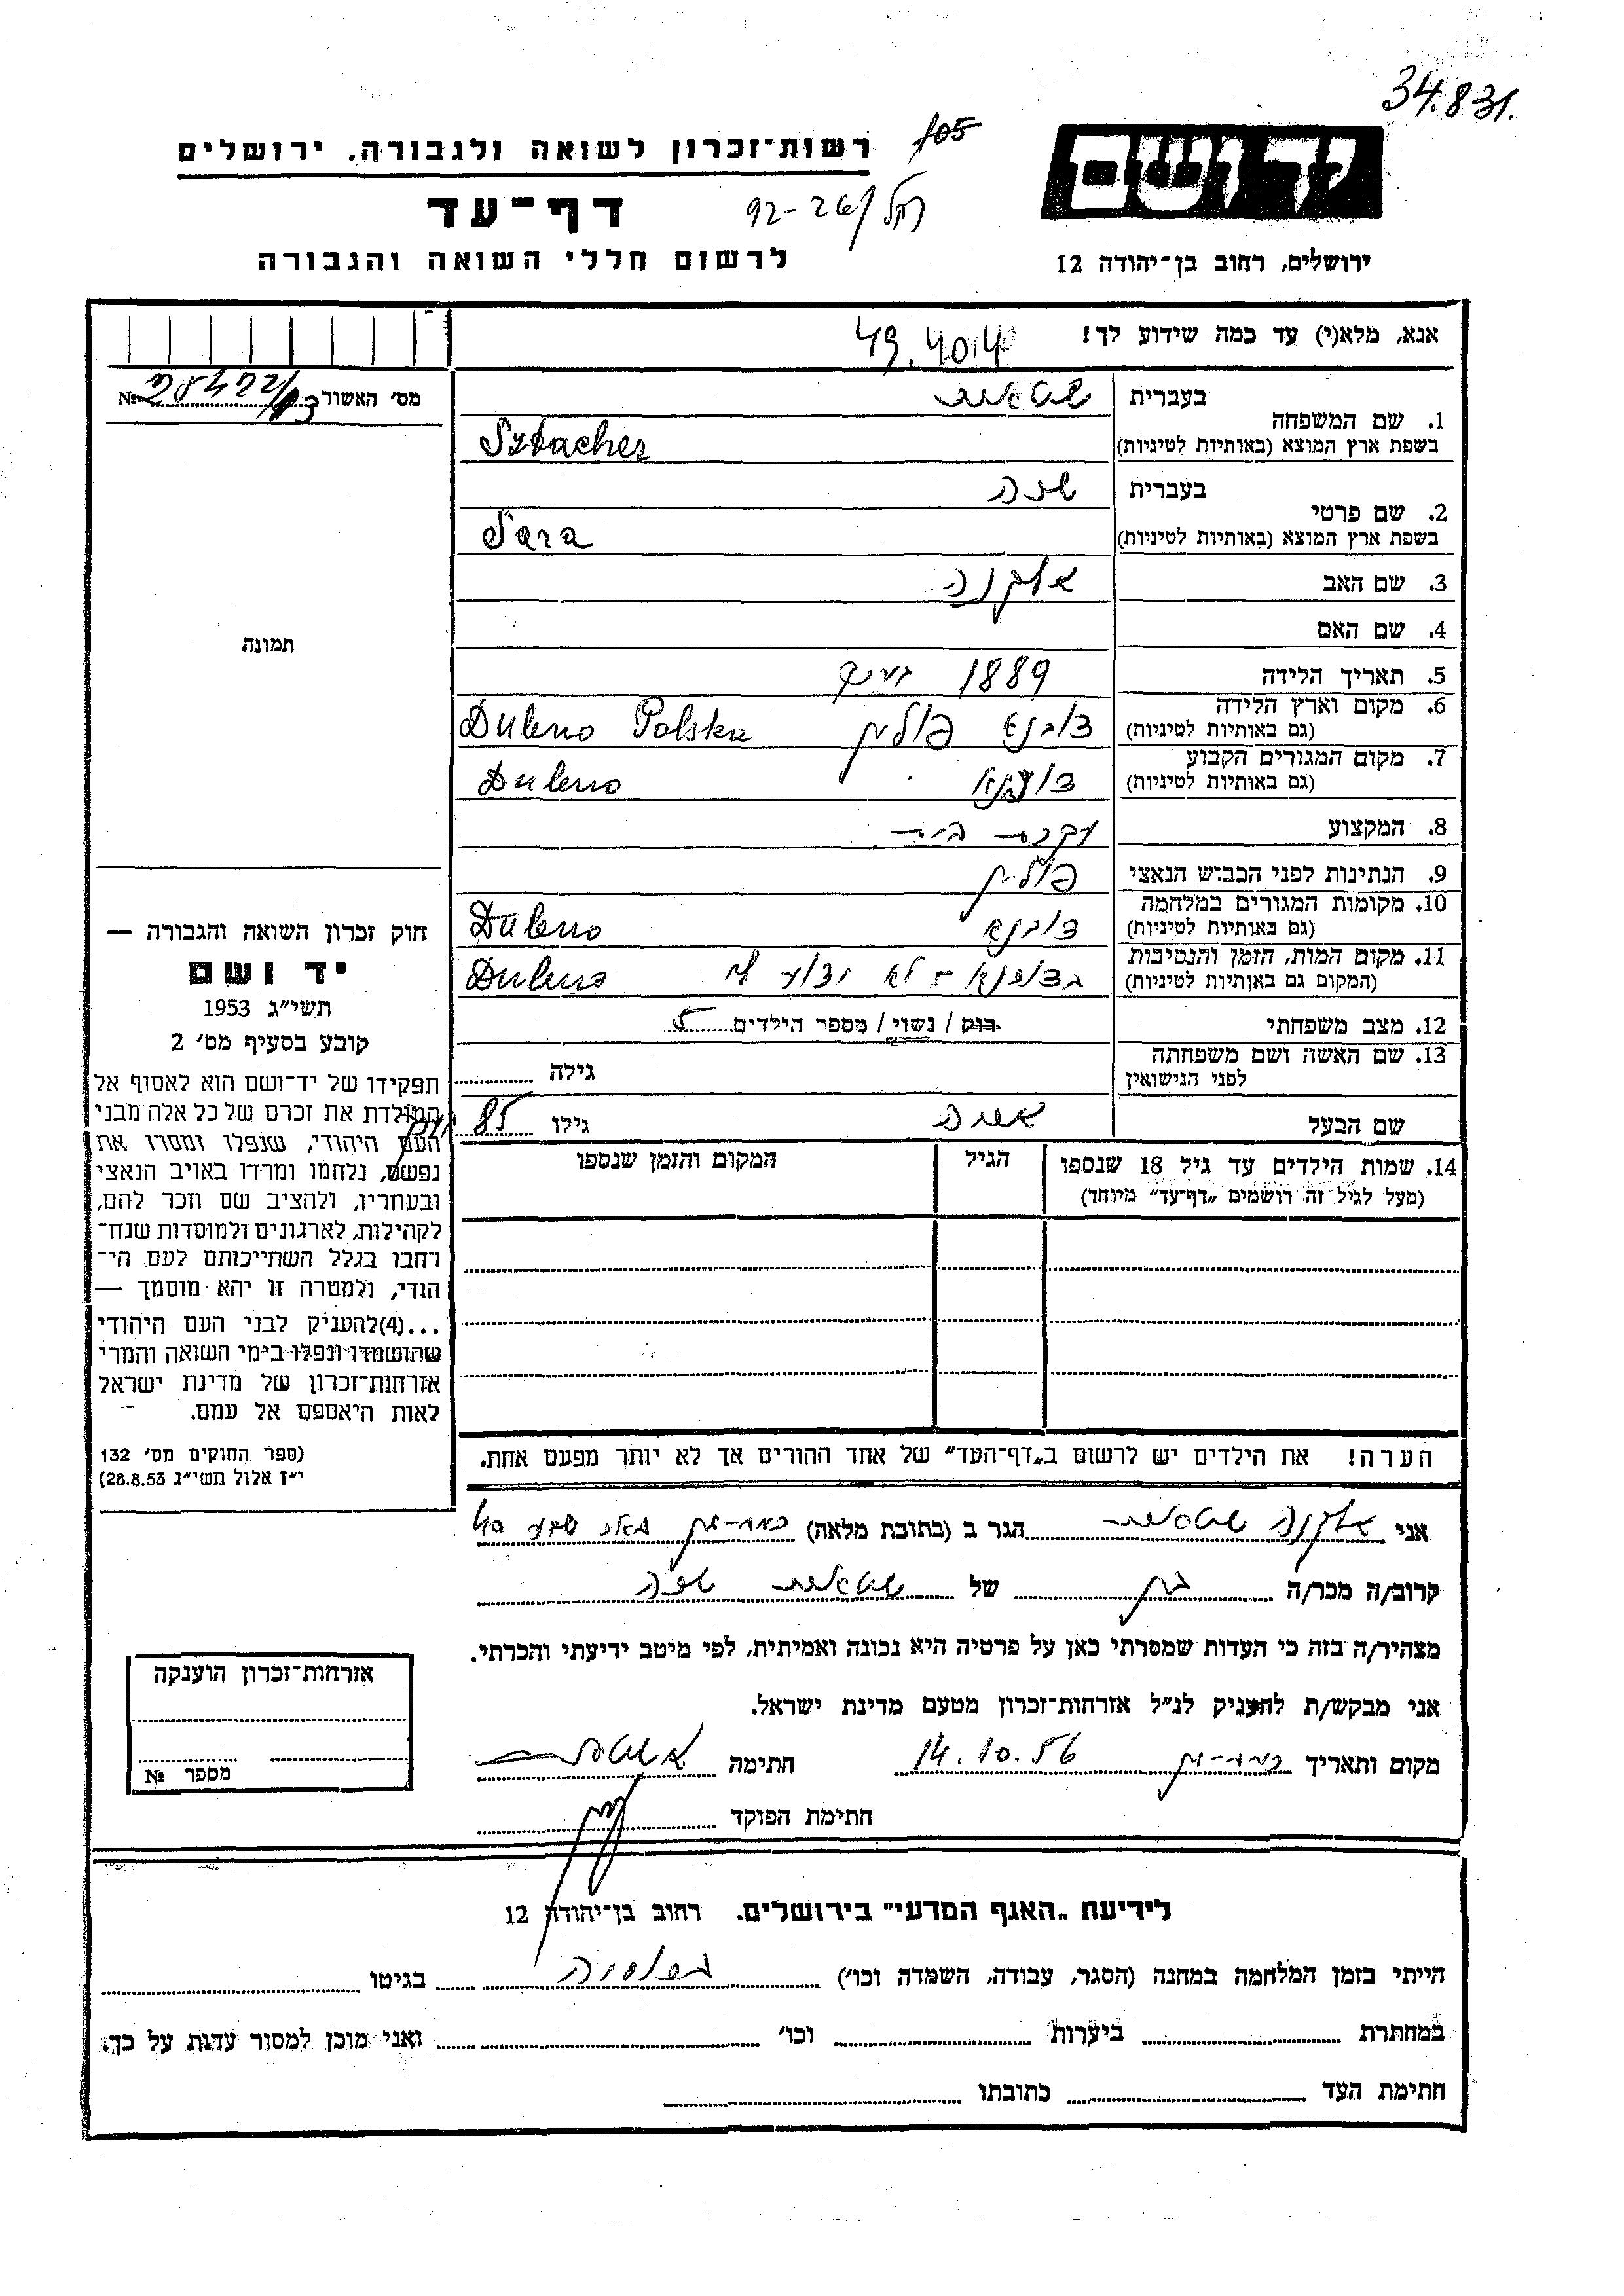 34.831.
105
רשות־זכרון לשואה ולגבורה, ירושלים
דף־עד
92-26/
לרשום חללי השואה והגבורה
יד ושם
ירושלים, רחוב בן־יהודה 12
אנא, מלא(י) עד כמה שידוע לך!
49.404
מס׳ האשור № 28422/13
1. שם המשפחה
בעברית
בשפת ארץ המוצא (באותיות לטיניות) Sztacher
2. שם פרטי
בעברית שרה
בשפת ארץ המוצא (באותיות לטיניות) Sara
3. שם האב אלקנה
4. שם האם
5. תאריך הלידה 1889
6. מקום וארץ הלידה
(גם באותיות לטיניות) דובנא פולין Dubno Polska
7. מקום המגורים הקבוע
(גם באותיות לטיניות) דובנא Dubno
8. המקצוע עקרת בית
9. הנתינות לפני הכבוש הנאצי פולין
10. מקומות המגורים במלחמה
(גם באותיות לטיניות) דובנא Dubno
11. מקום המות, הזמן והנסיבות
(המקום גם באותיות לטיניות) בדובנא - לא ידוע לי Dubno
12. מצב משפחתי רוק / נשוי / מספר הילדים 5
13. שם האשה ושם משפחתה
לפני הנישואין גילה
שם הבעל גילו 85
14. שמות הילדים עד גיל 18 שנספו
(מעל לגיל זה רושמים „דף־עד” מיוחד)
הגיל
המקום והזמן שנספו
הערה! את הילדים יש לרשום ב„דף־העד” של אחד ההורים אך לא יותר מפעם אחת.
תמונה
חוק זכרון השואה והגבורה —
יד ושם
תשי״ג 1953
קובע בסעיף מס׳ 2
תפקידו של יד־ושם הוא לאסוף אל
המולדת את זכרם של כל אלה מבני
העם היהודי, שנפלו ומסרו את
נפשם, נלחמו ומרדו באויב הנאצי
ובעוזריו, ולהציב שם וזכר להם,
לקהילות, לארגונים ולמוסדות שנח־
רחבו בגלל השתייכותם לעם הי־
הודי, ולמטרה זו יהא מוסמך —
...(4) להעניק לבני העם היהודי
שהושמדו ונפלו בימי השואה והמרי
אזרחות־זכרון של מדינת ישראל
לאות היאספם אל עמם.
(ספר החוקים מס׳ 132
י״ז אלול תשי״ג 28.8.53)
אני אלקנה הגר ב (כתובת מלאה) 40
קרוב/ה מכר/ה בן של שרה
מצהיר/ה בזה כי העדות שמסרתי כאן על פרטיה היא נכונה ואמיתית, לפי מיטב ידיעתי והכרתי.
אני מבקש/ת להעניק לנ״ל אזרחות־זכרון מטעם מדינת ישראל.
מקום ותאריך 14.10.56 חתימה
חתימת הפוקד
אזרחות־זכרון הוענקה
מספר №
לידיעת „האגף המדעי” בירושלים. רחוב בן־יהודה 12
הייתי בזמן המלחמה במחנה (הסגר, עבודה, השמדה וכו׳) ברוסיה בגיטו
במחתרת ביערות וכו׳ ואני מוכן למסור עדות על כך.
חתימת העד כתובתו